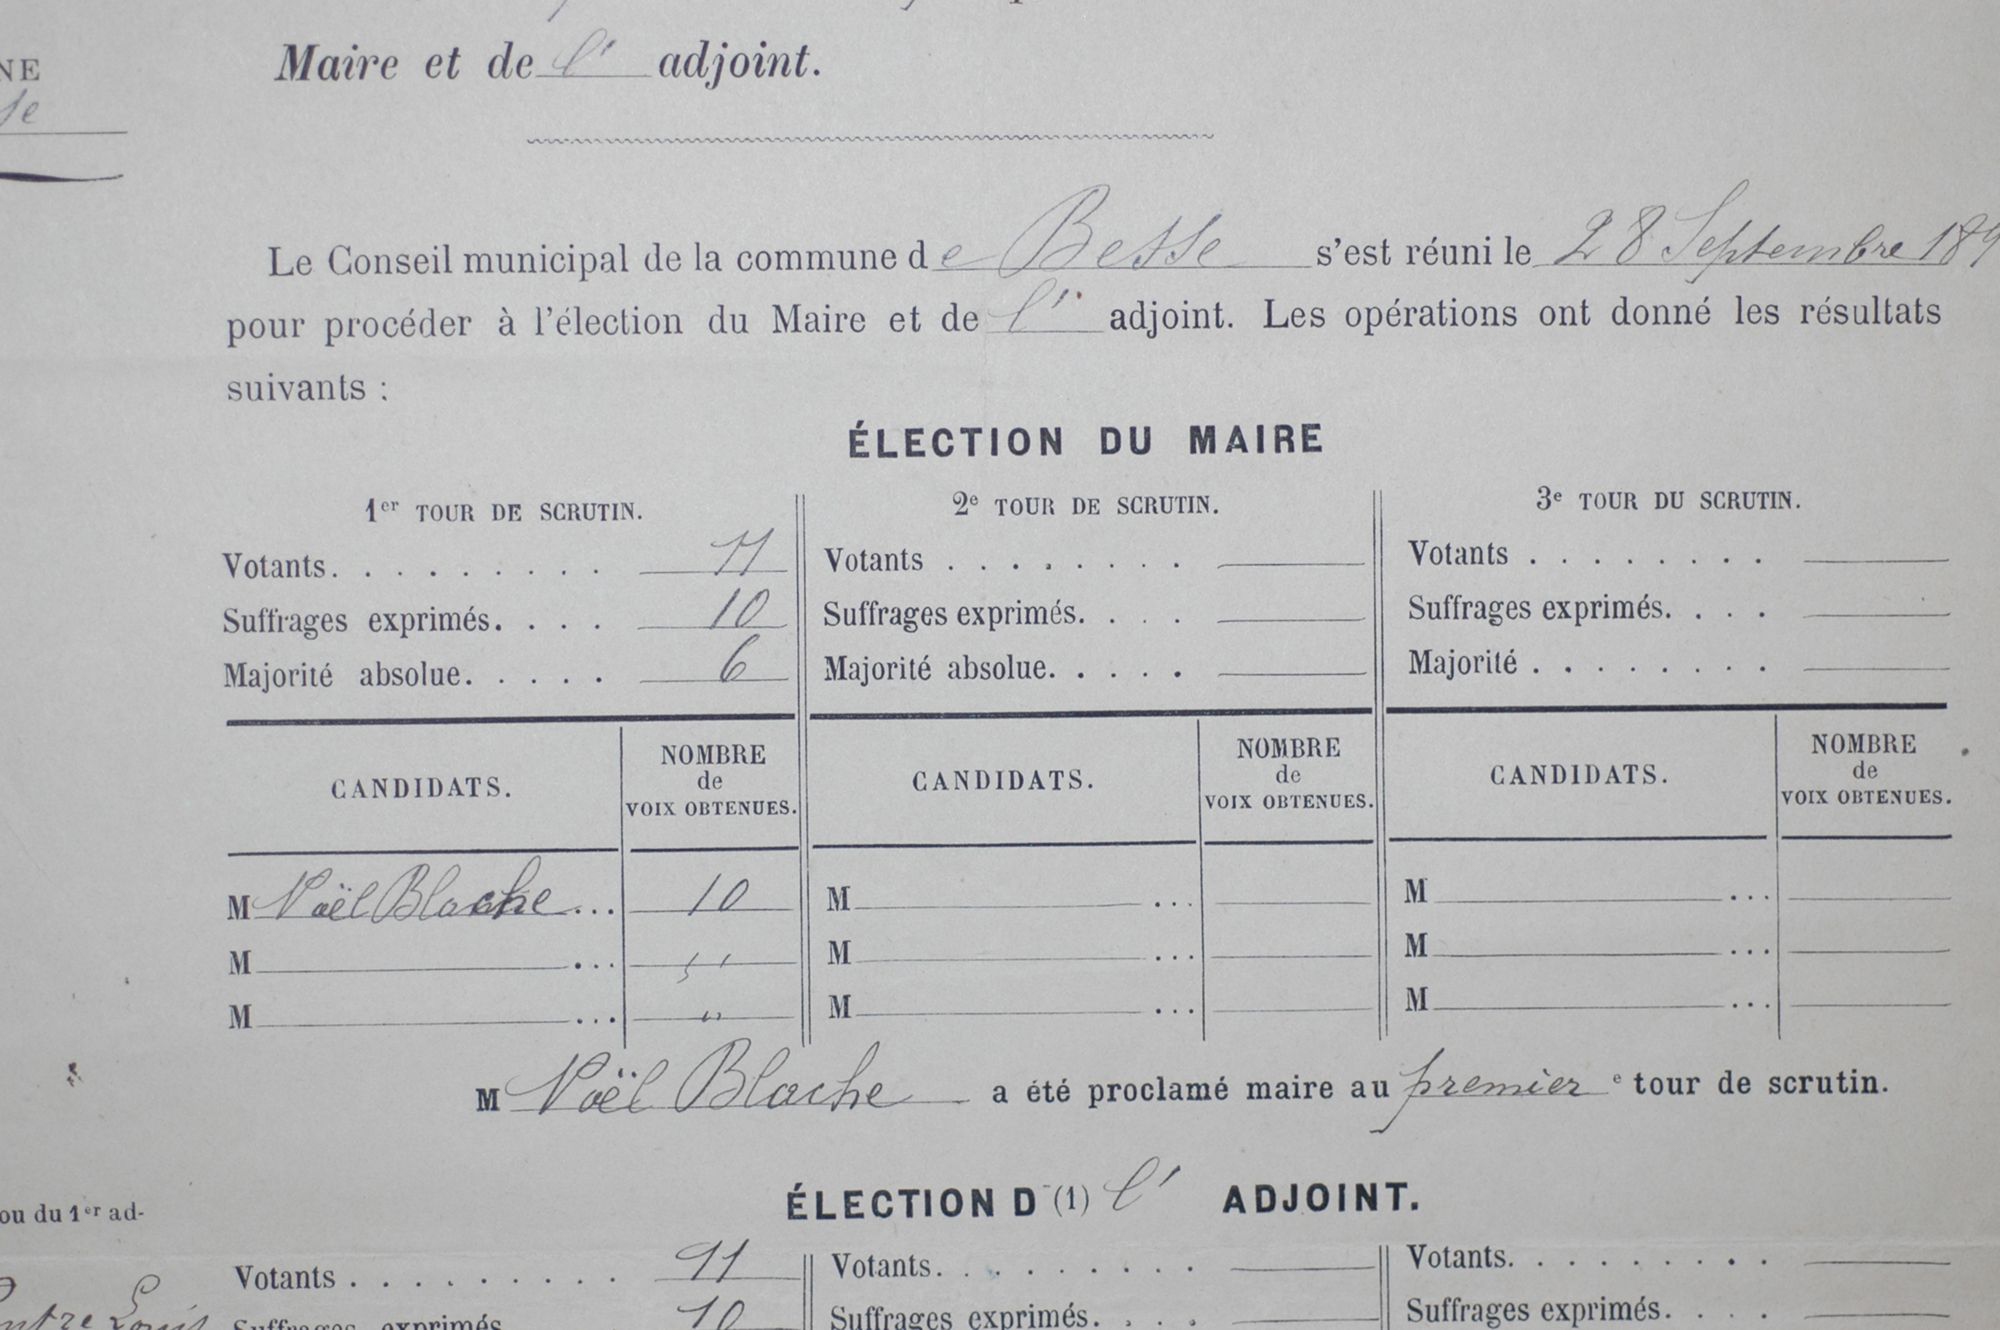 Maire et de l' adjoint.
NE
Le Conseil municipal de la commune de Besse s'est réuni le 28 Septembre 189
pour procéder à l'élection du Maire et de l' adjoint. Les opérations ont donné les résultats
suivants :
ÉLECTION DU MAIRE
1er TOUR DE SCRUTIN.
Votants. . . . . . . . . 11
Suffrages exprimés. . . . 10
Majorité absolue. . . . . 6
CANDIDATS.
NOMBRE
de
VOIX OBTENUES.
M Noël Blache ... 10
M ... "
M ... "
2e TOUR DE SCRUTIN.
Votants . . . . . . . .
Suffrages exprimés. . . .
Majorité absolue. . . . .
CANDIDATS.
NOMBRE
de
VOIX OBTENUES.
M ...
M ...
M ...
3e TOUR DU SCRUTIN.
Votants . . . . . . . .
Suffrages exprimés. . . .
Majorité . . . . . . . .
CANDIDATS.
NOMBRE
de
VOIX OBTENUES.
M ...
M ...
M ...
M Noël Blache a été proclamé maire au premier e tour de scrutin.
ÉLECTION D (1) l' ADJOINT.
ou du 1er ad-
Votants . . . . . . . . . 11
Suffrages exprimés 10
Votants. . . . . . . . .
Suffrages exprimés. . . .
Votants. . . . . . . . .
Suffrages exprimés. . . .
Louis